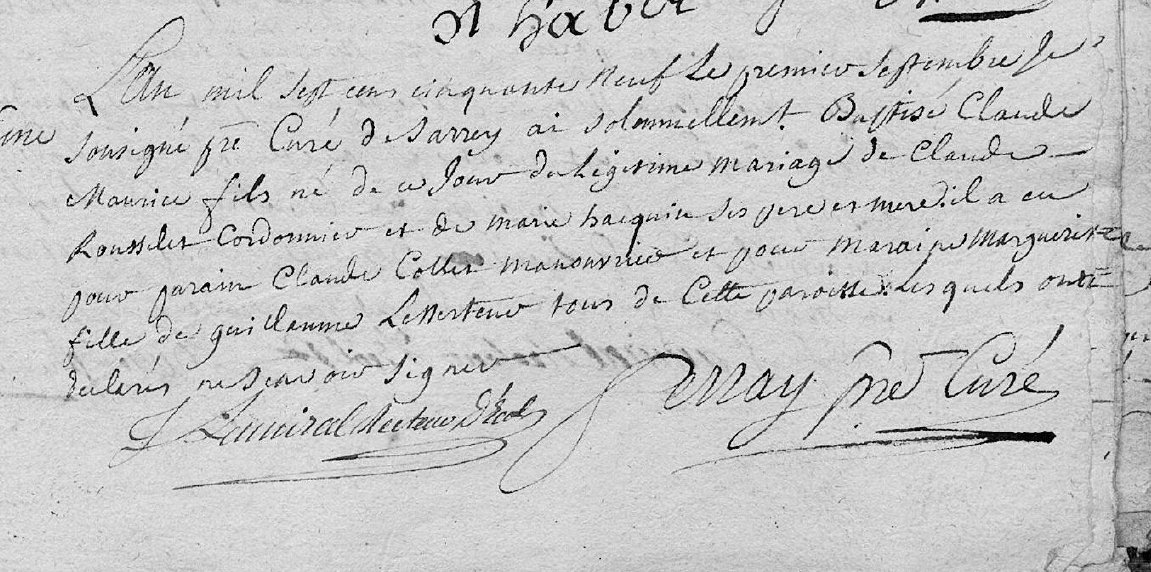 L'An mil sept cens cinquante neuf Le premier septembre Je
sousigné pre Curé de Sarrey ai solemnellemt. Baptisé Claude
Maurice fils né de ce Jour du Légitime mariage de Claude
Rousselet Cordonnier et de marie hacquin ses pere et mere: il a eu
pour parain Claude Collet manouvrier et pour maraine Marguerite
fille de guillaume tous de Cette paroisse. Lesquels ont
declarés ne sçavoir signer
pre Curé
Lamiral Recteur D'Ecole